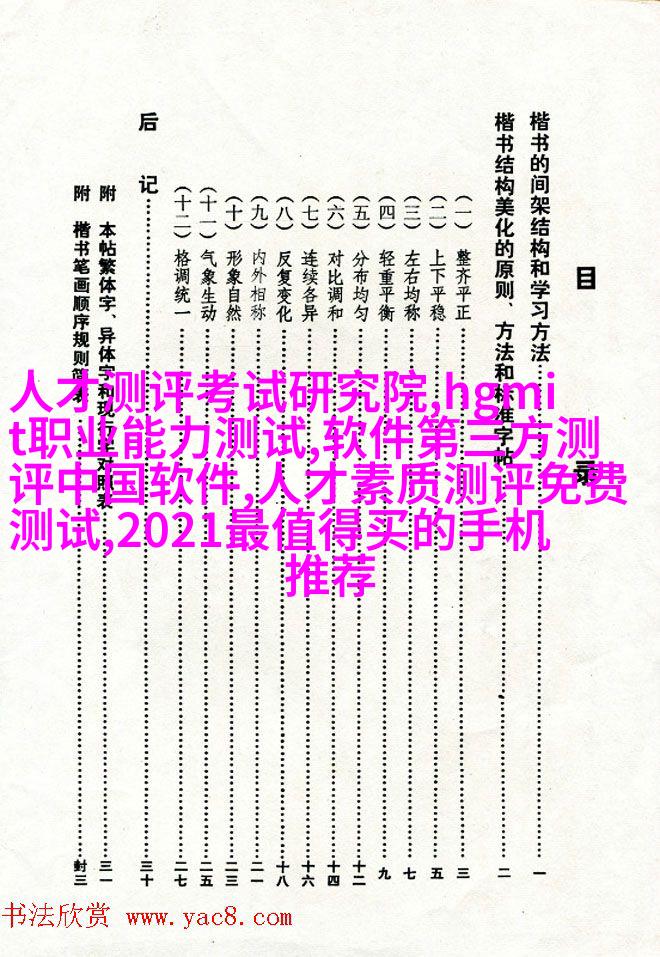 目录
楷书的间架结构和学习方法……一
楷书结构美化的原则、方法和标准字帖……二
(一) 整齐平正……三
(二) 上下平稳……五
(三) 左右均称……七
(四) 轻重平衡……九
(五) 分布均匀……十二
(六) 对比调和……十四
(七) 连续各异……十六
(八) 反复变化……十八
(九) 内外相称……二一
(十) 形象自然……二三
(十一) 气象生动……二五
(十二) 格调统一……二七
后记……三十
附 本帖繁体字、异体字和现行字对照表……三一
附 楷书笔画顺序规则简表……封三
人才测评考试研究院,hgmi
t职业能力测试,软件第三方测
评中国软件,人才素质测评免费
测试,2021最值得买的手机
推荐
书法欣赏 www.yac8.com